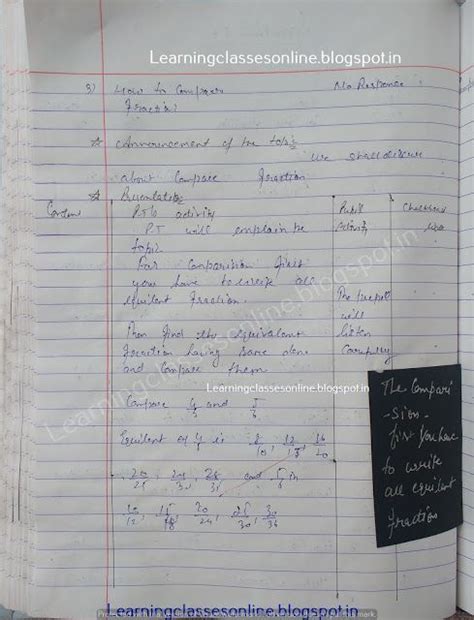 Learningclassesonline.blogspot.in
3) How to Compare No Response
Fraction?
☆ Announcement of the topic
we shall discuss
about Compare fraction
☆
Content PTs activity Pupil Chalkboard
PT will explain the activity
topic
For Comparision first
you have to write all
equilent fraction. The pupil
will
Then find the equivalent listen
fraction having same
and Compare them
Learningclassesonline.blogspot.in
Compare 4/5 and 5/6
Equilent of 4 is 8/10, 12/15, 16/20
20/25, 24/30, 28/35 and 5/6 is
10/12, 15/18, 20/24, 25/30, 30/36
The Compari
-sion -
first you have
to write
all equilent
fraction
Learningclassesonline.blogspot.in